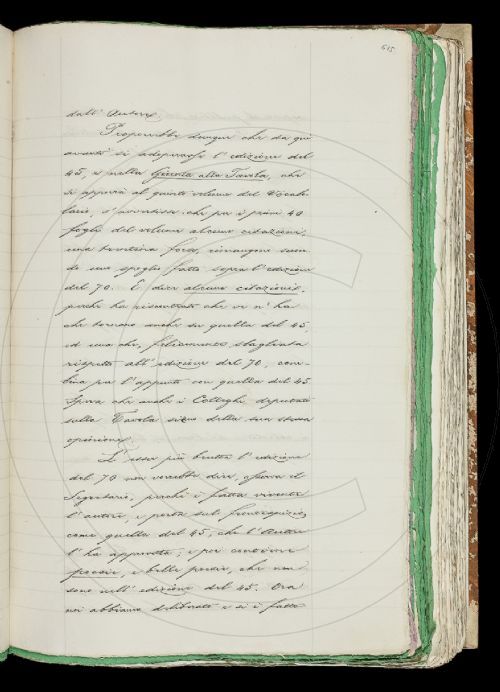 615
dall' Autore.
Proporrebbe dunque che da qui
avanti si adoperasse l' edizione del
45, e nella Giunta alla Tavola, che
si apporrà al quinto volume del Vocabo-
lario, s' avvertisse che per i primi 40
fogli del volume alcune citazioni,
una trentina forse, rimangono secon-
do uno spoglio fatto sopra l' edizione
del 70. E dice alcune citazioni,
perchè ha riscontrato che ve n' ha
che tornano anche su quella del 45,
ed una che, felicemente sbagliata
rispetto all' edizione del 70, com-
bina per l' appunto con quella del 45.
Spera che anche i Colleghi deputati
sulla Tavola siano della sua stessa
opinione.
L' esser più brutta l' edizione
del 70 non vorrebbe dire, osserva il
Segretario, perchè è fatta vivente
l' autore, e porta sul frontespizio,
come quella del 45, che l' Autore
l' ha approvata; e poi contiene
poesie, e belle poesie, che non
sono nell' edizione del 45. Ora
noi abbiamo deliberato e si è fatto